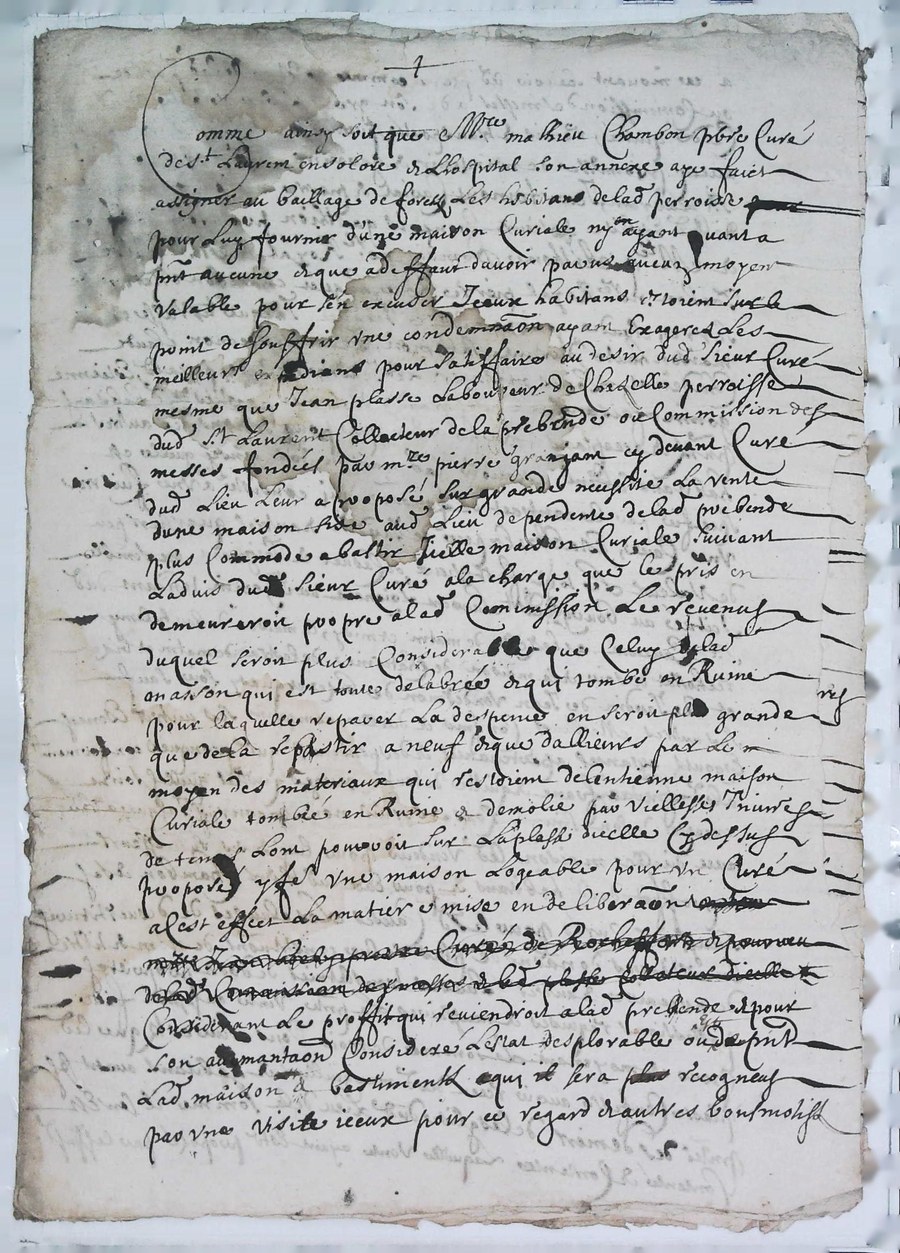 Comme ainsy soit que Mre mathieu Chambon pbre Curé
de St Laurent en solore & Lhospital son annexe aye faict
assigner au bailliage de forestz Les habitans de lad perroisse
pour Luy fournir d'une maison Curiale ny en ayant quant a
pnt aucune & que a deffaut davoir pareus aucun moyen
valable pour sen excuser Iceux habitans estoient sur le
point de souffrir vne condemnaõn ayant Exageré Les
meilleurs expediens pour satisffaire au desir dud Sieur Curé
mesme que Jean plasse Laboureur de Chazelle perroisse
dud St Laurent Collecteur de la prebende ou Commission des
messes fondées par mre pierre granjant cy devant Curé
dud Lieu Leur a proposé sur grande necessite La vente
dune maison size aud Lieu dependente de lad prebende
plus Commode a bastir Jcelle maison Curiale suivant
Ladvis dud Sieur Curé a la charge que le pris en
demeureroit propre a lad Commission Le revenus
duquel seroit plus Considerable que Celuy de lad
maison qui est toute delabrée & qui tombe en Ruine
pour laquelle reparer La despence en seroit plus grande
res
que de la rebastir a neuf & que dallieurs par Le
moyen des materiaux qui restoient de lentienne maison
Curiale tombée en Ruine & demolie par viellesses Iniures
de temps Lont pourroit sur La plesse dicelle Cy dessus
proposé y fe vne maison Logeable pour vn Curé
a Cest effect La matiere mise en deliberaõn
Curé de Rocheffort & pourveu
de lad Commission de messes & led plasse Collecteur dicelle
Considerant Le proffit qui reviendroit a lad prebende & pour
son augmantaõn Consideré Lestat desplorable ou est de pnt
Lad maison & bastimentz & qui il sera plus recogneus
par vne visite iceux pour ce regard & autres bons motifs